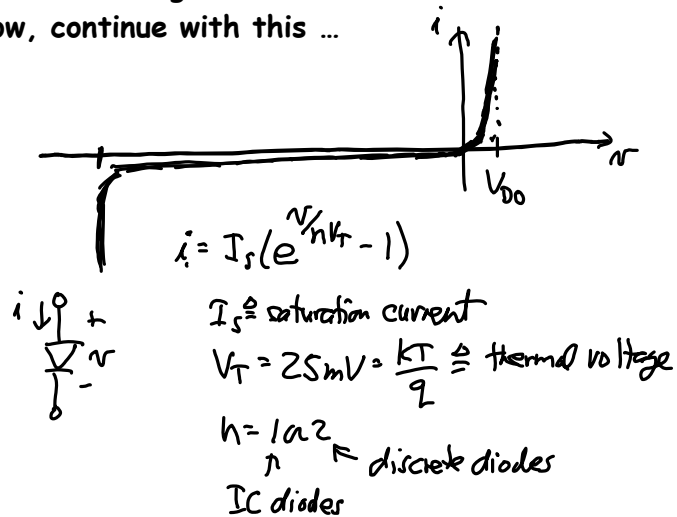 ow, continue with this ...
i
v
V_DO
i = I_s(e^{v/nV_T} - 1)
i
+
v
-
I_s ≜ saturation current
V_T = 25mV = kT/q ≜ thermal voltage
n = 1 a 2
discrete diodes
IC diodes